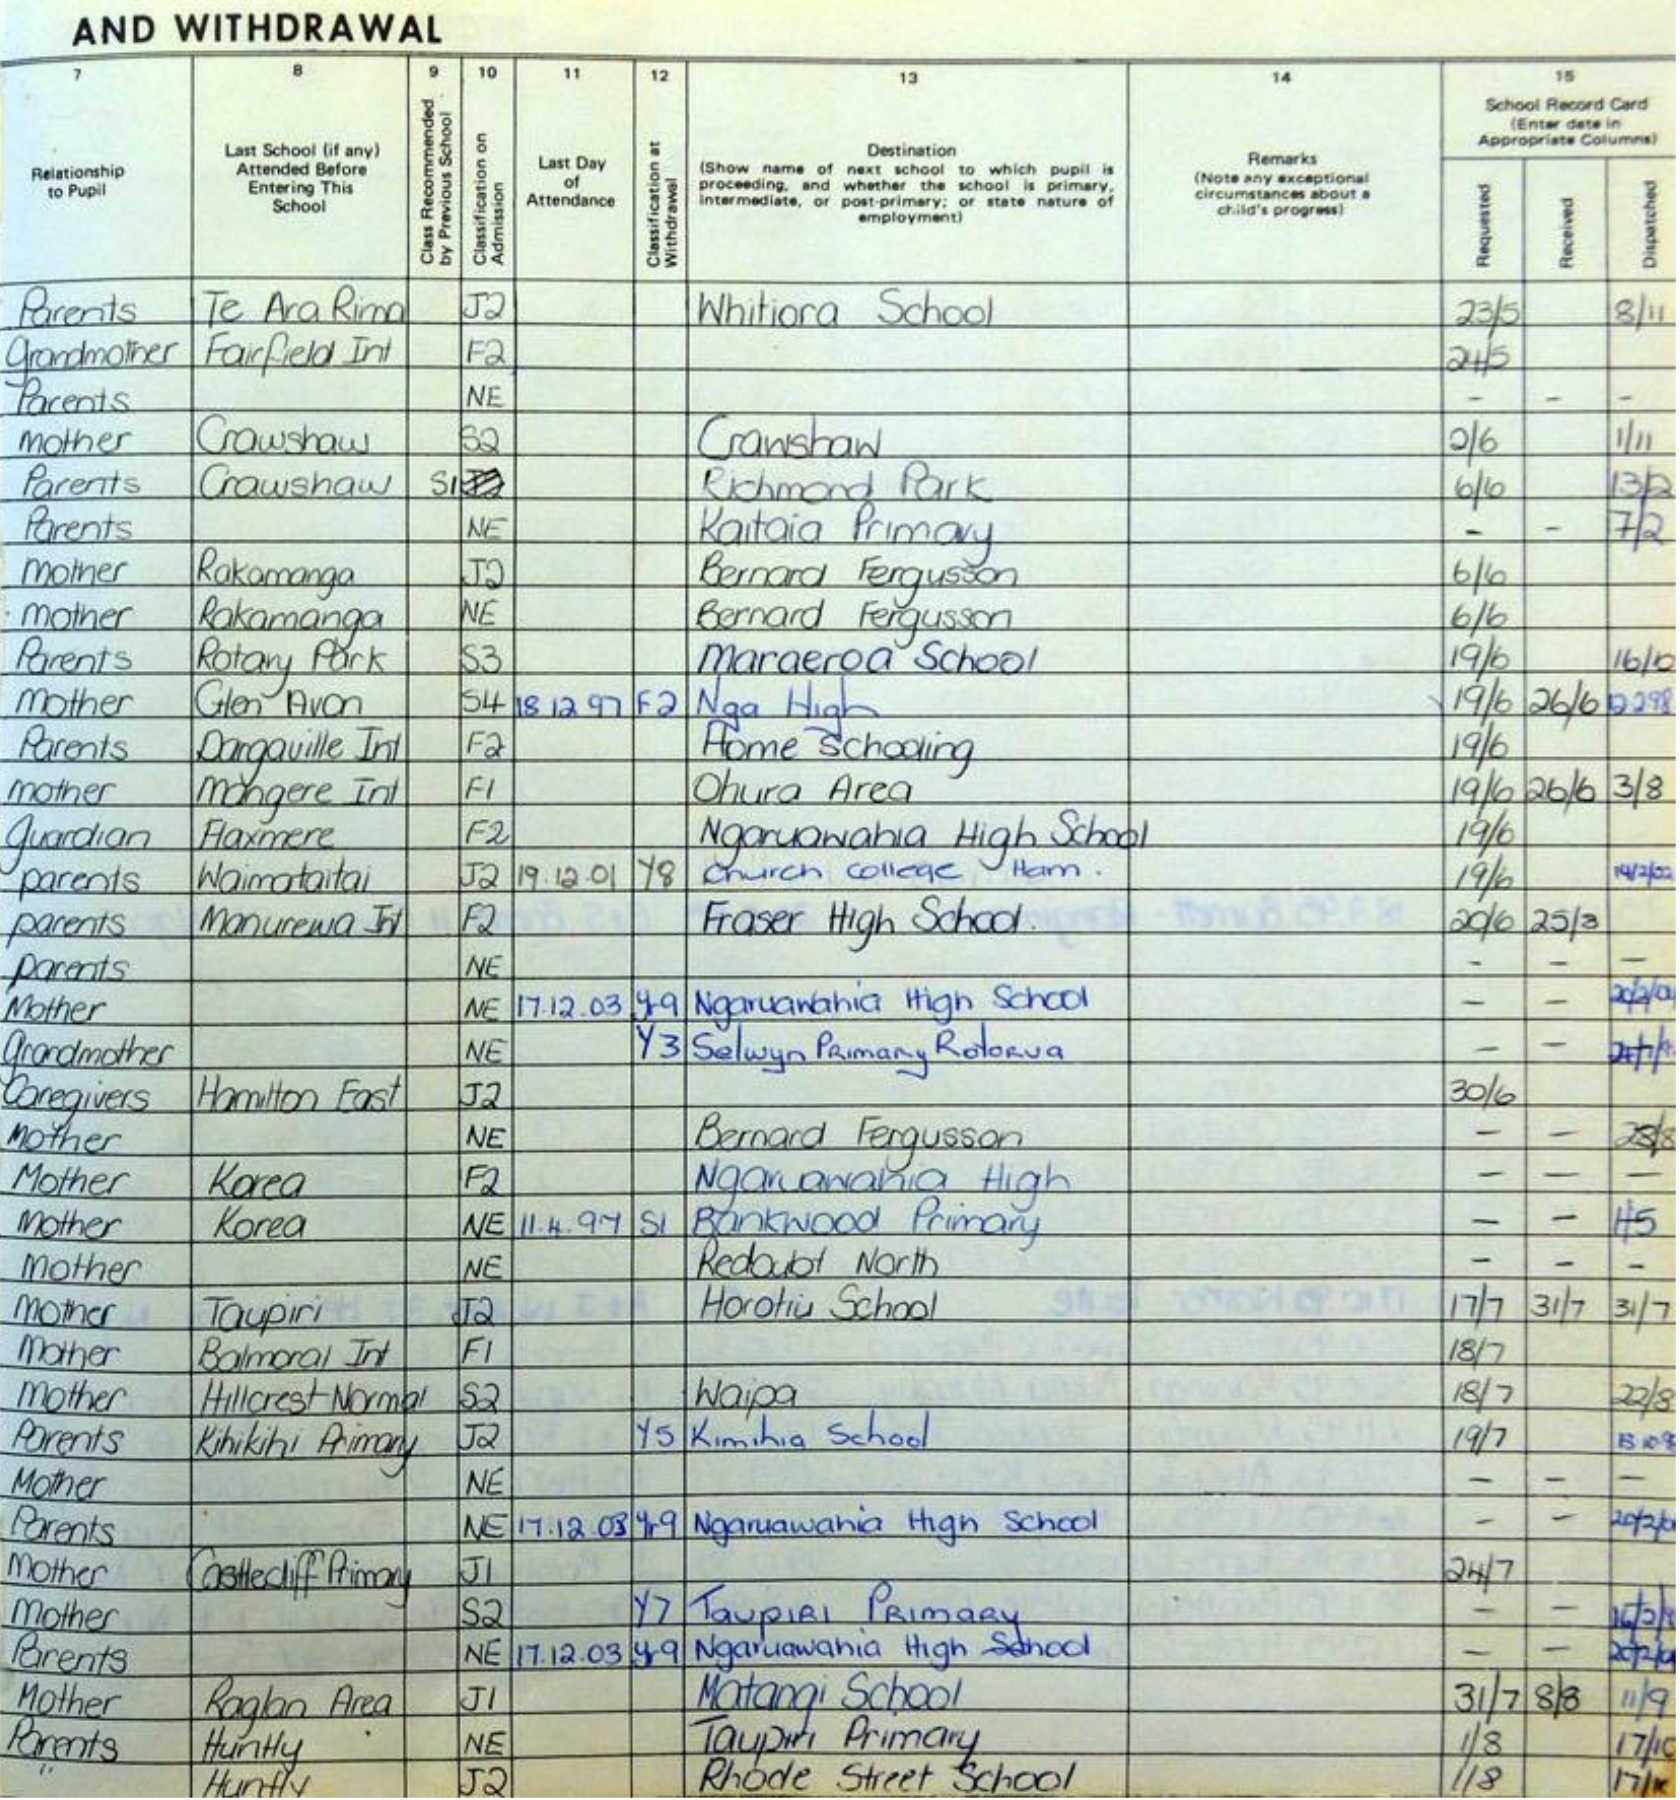 AND WITHDRAWAL
7 8 9 10 11 12 13 14 15
Relationship to Pupil
Last School (if any) Attended Before Entering This School
Class Recommended by Previous School
Classification on Admission
Last Day of Attendance
Classification at Withdrawal
Destination
(Show name of next school to which pupil is proceeding, and whether the school is primary, intermediate, or post-primary; or state nature of employment)
Remarks
(Note any exceptional circumstances about a child's progress)
School Record Card
(Enter date in Appropriate Columns)
Requested Received Dispatched
Parents Te Ara Rima J2 Whitiora School 23/5 8/11
Grandmother Fairfield Int F2 24/5
Parents NE - - -
Mother Crawshaw S2 Crawshaw 2/6 1/11
Parents Crawshaw S1 Richmond Park 6/6 13/2
Parents NE Kaitaia Primary - - 7/2
Mother Rakamanga J2 Bernard Fergusson 6/6
Mother Rakamanga NE Bernard Fergusson 6/6
Parents Rotary Park S3 Maraeroa School 19/6 16/10
Mother Glen Avon S4 18.12.97 F2 Nga High 19/6 26/6 12.2.98
Parents Dargaville Int F2 Home Schooling 19/6
mother Mangere Int F1 Ohura Area 19/6 26/6 3/8
Guardian Flaxmere F2 Ngaruawahia High School 19/6
parents Waimataitai J2 19.12.01 Y8 Church College Ham. 19/6 14/2/02
parents Manurewa Int F2 Fraser High School. 20/6 25/3
parents NE - - -
Mother NE 17.12.03 Yr9 Ngaruawahia High School - -
Grandmother NE Y3 Selwyn Primary Rotorua - -
Caregivers Hamilton East J2 30/6
Mother NE Bernard Fergusson - - 28/8
Mother Korea F2 Ngaruawahia High - - -
Mother Korea NE 11.4.97 S1 Bankwood Primary - - 1/5
Mother NE Redoubt North - - -
Mother Taupiri J2 Horotiu School 17/7 31/7 31/7
Mother Balmoral Int F1 18/7
Mother Hillcrest Normal S2 Waipa 18/7 22/8
Parents Kihikihi Primary J2 Y5 Kimihia School 19/7
Mother NE - - -
Parents NE 17.12.03 Yr9 Ngaruawahia High School - -
Mother Castlecliff Primary J1 24/7
Mother S2 Y7 Taupiri Primary - -
Parents NE 17.12.03 Yr9 Ngaruawahia High School - -
Mother Raglan Area J1 Matangi School 31/7 8/8 11/9
Parents Huntly NE Taupiri Primary 1/8 17/10
" Huntly J2 Rhode Street School 1/8